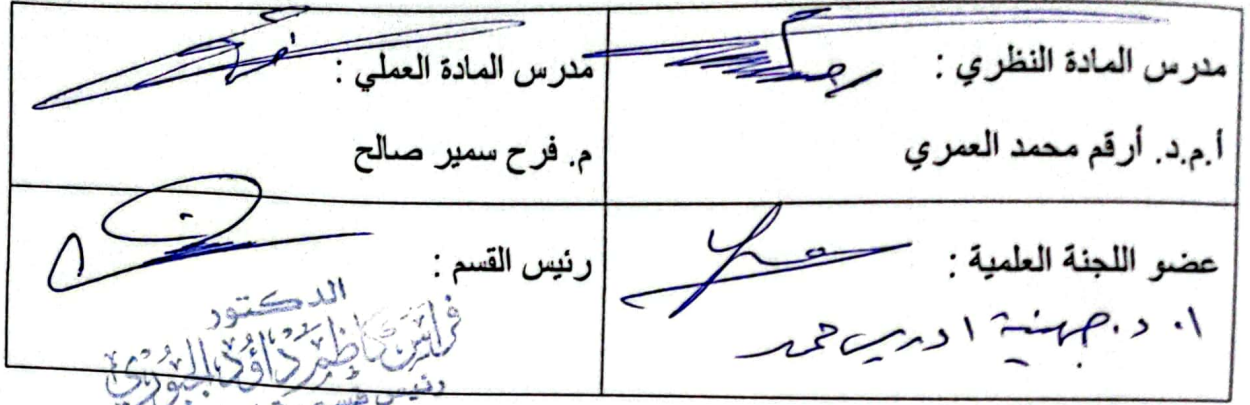 مدرس المادة النظري :
أ.م.د. أرقم محمد العمري
مدرس المادة العملي :
م. فرح سمير صالح
عضو اللجنة العلمية :
ا. د. جهينة ادريس محمد
رئيس القسم :
الدكتور
فراس كاظم داؤد الجبوري
رئيس قسم